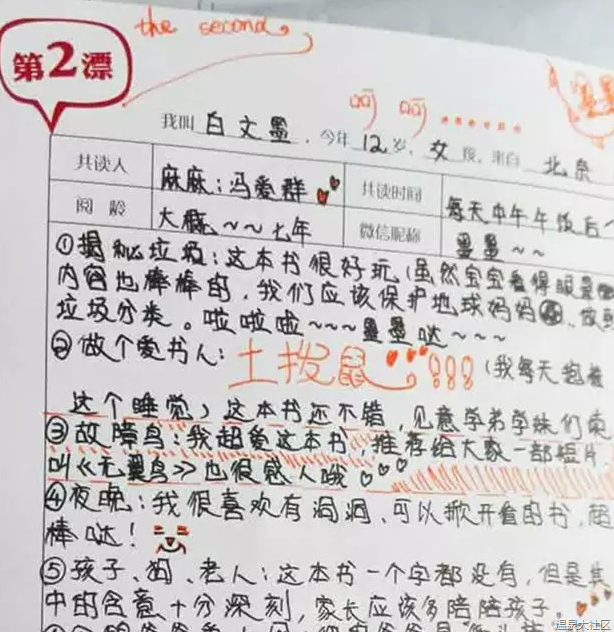 the second
第2漂
我叫 白文墨，今年 12 岁，女 孩，来自 北京
共读人 麻麻：冯爱群 共读时间 每天中午午饭后一
阅 龄 大概~~七年 微信昵称 墨墨~~
①揭秘垃圾：这本书很好玩（虽然宝宝看得眼
内容也棒棒的，我们应该保护地球妈妈
垃圾分类。啦啦啦~~~墨墨哒~~~
②做个爱书人：土拨鼠！！！（我每天抱着
这个睡觉）这本书还不错，
③故障鸟：我超爱这本书，推荐给大家一部短片
叫《无翼鸟》也很感人哦
④夜晚：我很喜欢有洞洞，可以掀开看的书，超
棒哒！
⑤孩子、狗、老人：这本书一个字都没有，但是其
中的含意十分深刻，家长应该多陪陪孩子。
温泉大社区